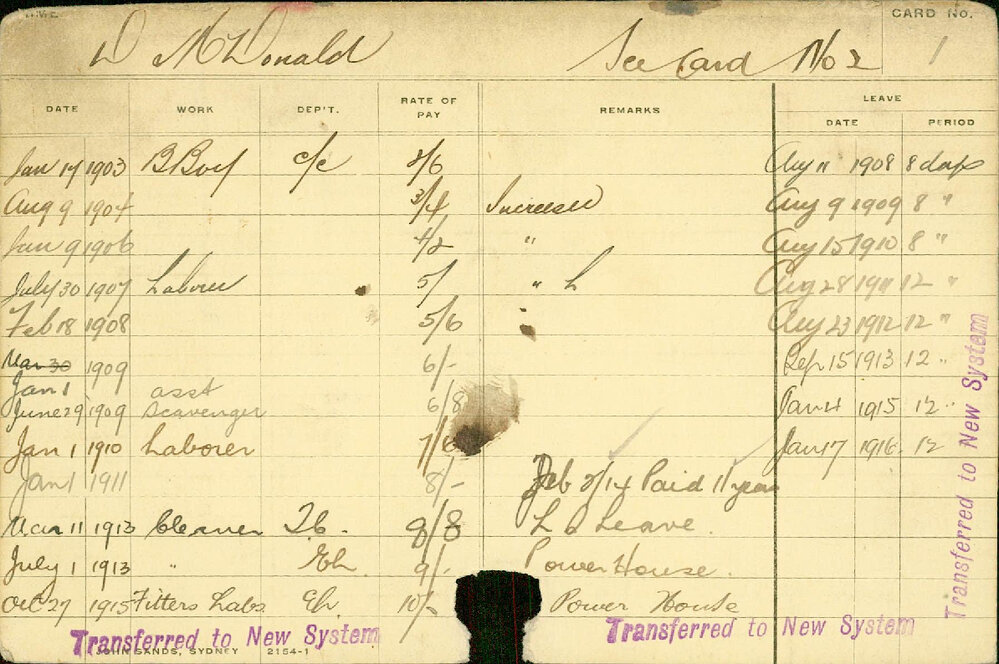 NAME CARD No.
D McDonald See Card No 2 1
DATE WORK DEP'T. RATE OF PAY REMARKS LEAVE
DATE PERIOD
Jan 17 1903 B Boy c/c 2/6 Aug 11 1908 8 days
Aug 9 1904 3/4 Increased Aug 9 1909 8 "
Jan 9 1906 4/2 " Aug 15 1910 8 "
July 30 1907 Laborer 5/ " L Aug 28 1911 12 "
Feb 18 1908 5/6 " Aug 23 1912 12 "
Mar 30 1909 6/- Sep 15 1913 12 "
Jan 1 asst
June 29 1909 Scavenger 6/8 Jan 4 1915 12 "
Jan 1 1910 Laborer 7/6 Jan 17 1916 12
Jan 1 1911 8/- Feb 2/14 Paid 11 years
Mar 11 1913 Cleaner 8/8 L S Leave
July 1 1913 " Eh. 9/- Power House.
Oct 27 1915 Fitters Labr Eh. 10/- Power House
Transferred to New System
Transferred to New System
Transferred to New System
JOHN SANDS, SYDNEY 2154-1